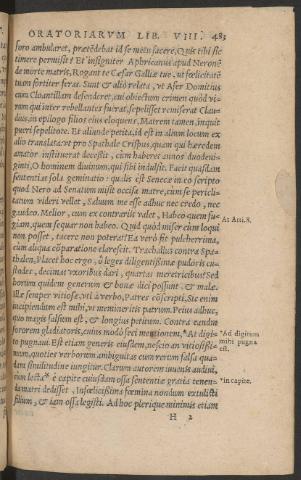 ORATORIARVM LIB. VIII. 483
foro ambularet, prætēdebat id se metu facere. Quis tibi sic
timere permisit? Et insigniter Aphricanus apud Neronē
de morte matris, Rogant te Cæsar Galliæ tuæ, ut fœlicitatē
tuam fortiter feras. Sunt & alio relata, ut Afer Domitius
cum Cloantillam defenderet, cui obiectum crimen quòd vi-
rum qui inter rebellantes fuerat, sepelisset remiserat Clau-
dius, in epilogo filios eius eloquens, Matrem tamen, inquit
pueri sepelitote. Et aliunde petita, id est in alium locum ex
alio translata: vt pro Spathale Crispus, quam qui hæredem
amator instituerat decessit, cum haberet annos duodeui-
ginti, O hominem diuinum, qui sibi indulsit. Facit quasdam
sententias sola geminatio: qualis est Senecæ in eo scripto
quod Nero ad Senatum misit occisa matre, cum se pericli-
tatum videri vellet, Saluum me esse adhuc nec credo, nec
gaudeo. Melior, cum ex contrariis valet, Habeo quem fu-
giam, quem sequar non habeo. Quid quòd miser cum loqui
non posset, tacere non poterat? Ea verò fit pulcherrima,
cum aliqua cōparatione clarescit. Trachallus contra Spa-
thalen, Placet hoc ergo, ô leges diligentissimæ pudoris cu-
stodes, decimas vxoribus dari, quartas meretricibus? Sed
horum quidem generum & bonæ dici possunt, & malæ.
Illæ semper vitiosæ, vt à verbo, Patres cōscripti, Sic enim
incipiendum est mihi, vt memineritis patrum. Peius adhuc,
quo magis falsum est, & longius petitum. Contra eandem
sororem gladiatoris, cuius modò feci mentionem, * At digi-
to pugnaui. Est etiam generis eiusdem, nescio an vitiosissi-
mum, quoties verborum ambiguitas cum rerum falsa qua-
dam similitudine iungitur. Clarum autorem iuuenis audiui,
cum lecta * è capite cuiusdam ossa sententiæ gratia tenen-
da matri dedisset, Infœlicissima fœmina nondum extulisti
filium, & iam ossa legisti. Ad hoc plerique minimis etiam
H 2
At Atti. 8.
* Ad digitum
mihi pugna
est.
* in capite.